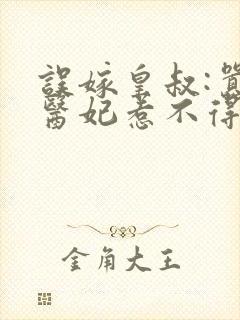 誤嫁皇叔:囂
醫妃惹不得
金角大王